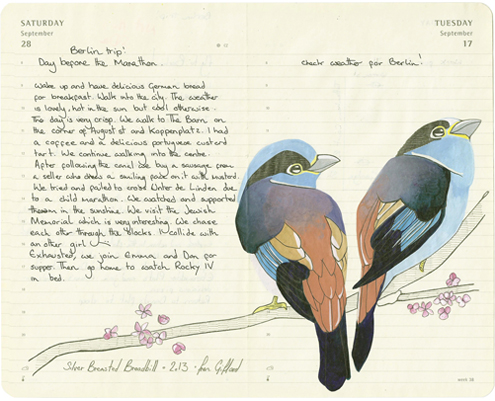 SATURDAY
September
28
Berlin trip!
Day before the Marathon.
Wake up and have delicious German bread
for breakfast. Walk into the city. The weather
is lovely, hot in the sun but cool otherwise.
The day is very crisp. We walk to The Barn on
the corner of August st and Koppenplatz. I had
a coffee and a delicious portuguese custard
tart. We continue walking into the centre.
After following the canal we buy a sausage from
a seller who drew a smiling face on it with mustard.
We tried and failed to cross Unter de Linden due
to a child marathon. We watched and supported
them in the sunshine. We visit the Jewish
Memorial which is very interesting. We chase
each other through the blocks. I collide with
an other girl
Exhausted, we join Emma and Dan for
supper. Then go home to watch Rocky IV
in bed.
Silver Breasted Broadbill • 2.13 •
TUESDAY
September
17
check weather for Berlin!
week 38